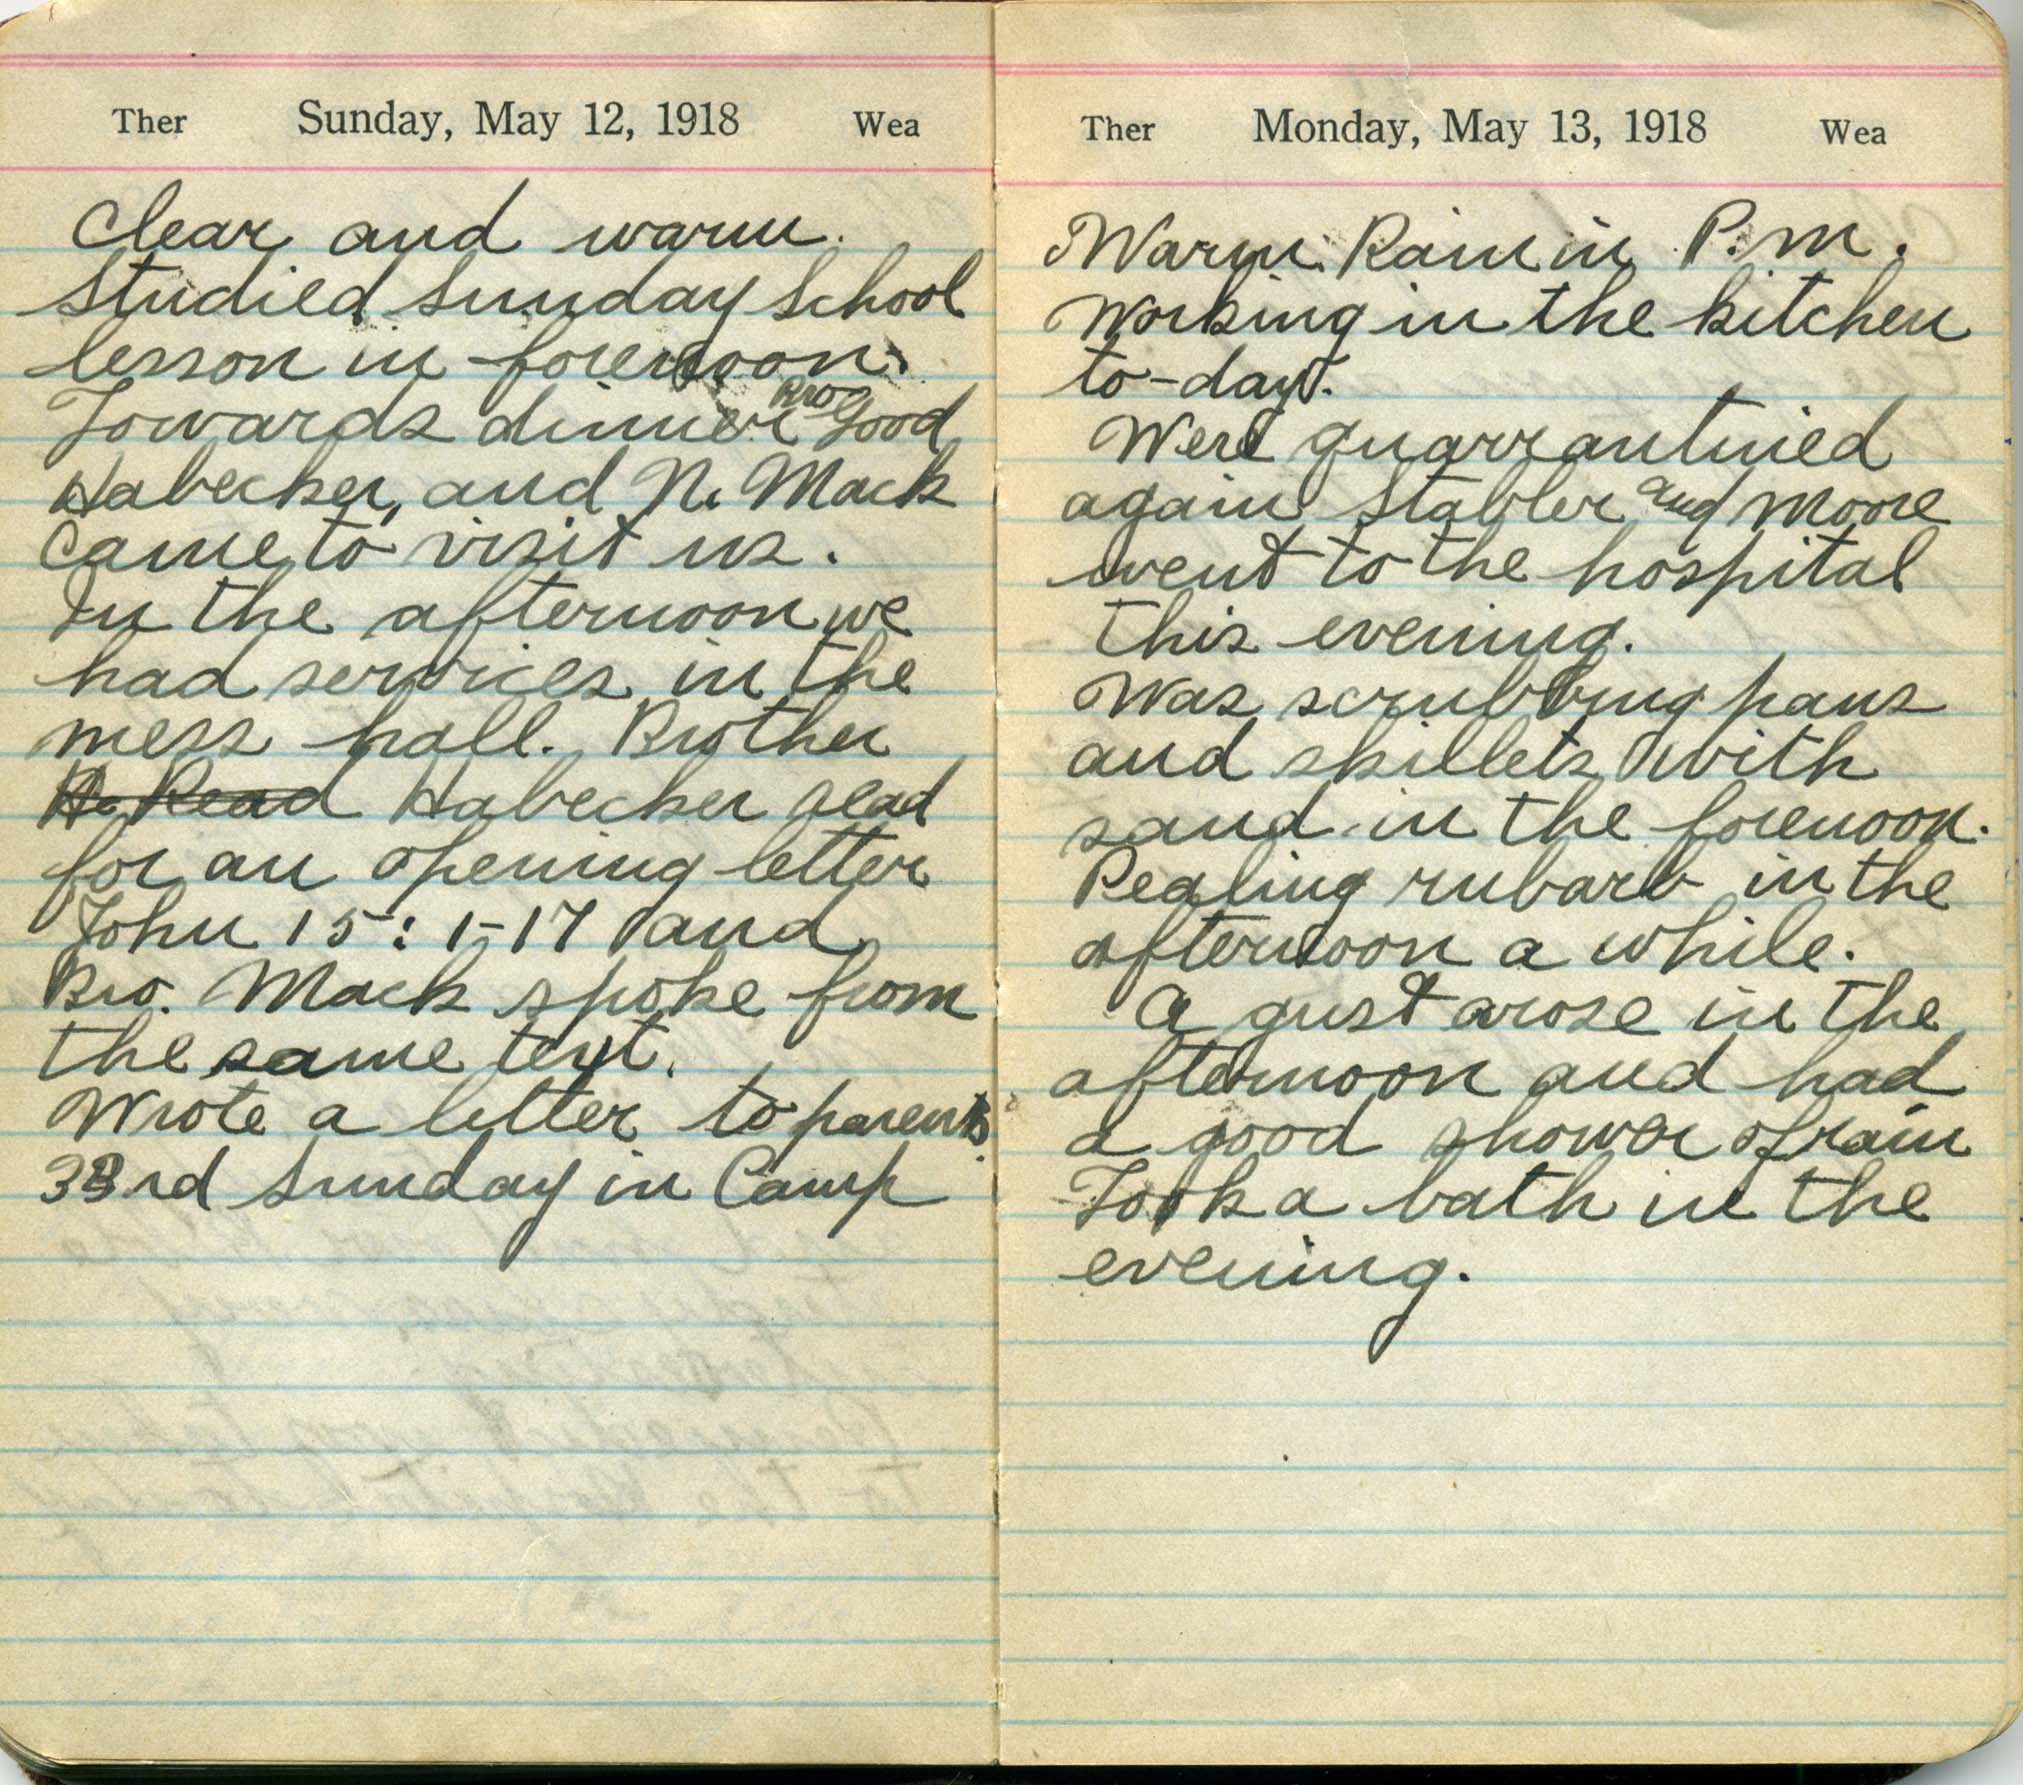 Ther Sunday, May 12, 1918 Wea
Clear and warm.
Studied Sunday School
lesson in forenoon.
Towards dinner Bro Good
Habecker, and N. Mack
Came to visit us.
In the afternoon we
had services in the
mess hall. Brother
H. Read Habecker read
for an opening letter
John 15: 1-17 and
Bro. Mack spoke from
the same text.
Wrote a letter to parents.
33rd Sunday in Camp
Ther Monday, May 13, 1918 Wea
Warm. Rain in P.M.
Working in the kitchen
to-day.
Were quarrantined
again Stabler and Moore
went to the hospital
this evening.
Was scrubbing pans
and skillets with
sand in the forenoon.
Pealing rubarb in the
afternoon a while.
A gust arose in the
afternoon and had
a good shower of rain
Took a bath in the
evening.